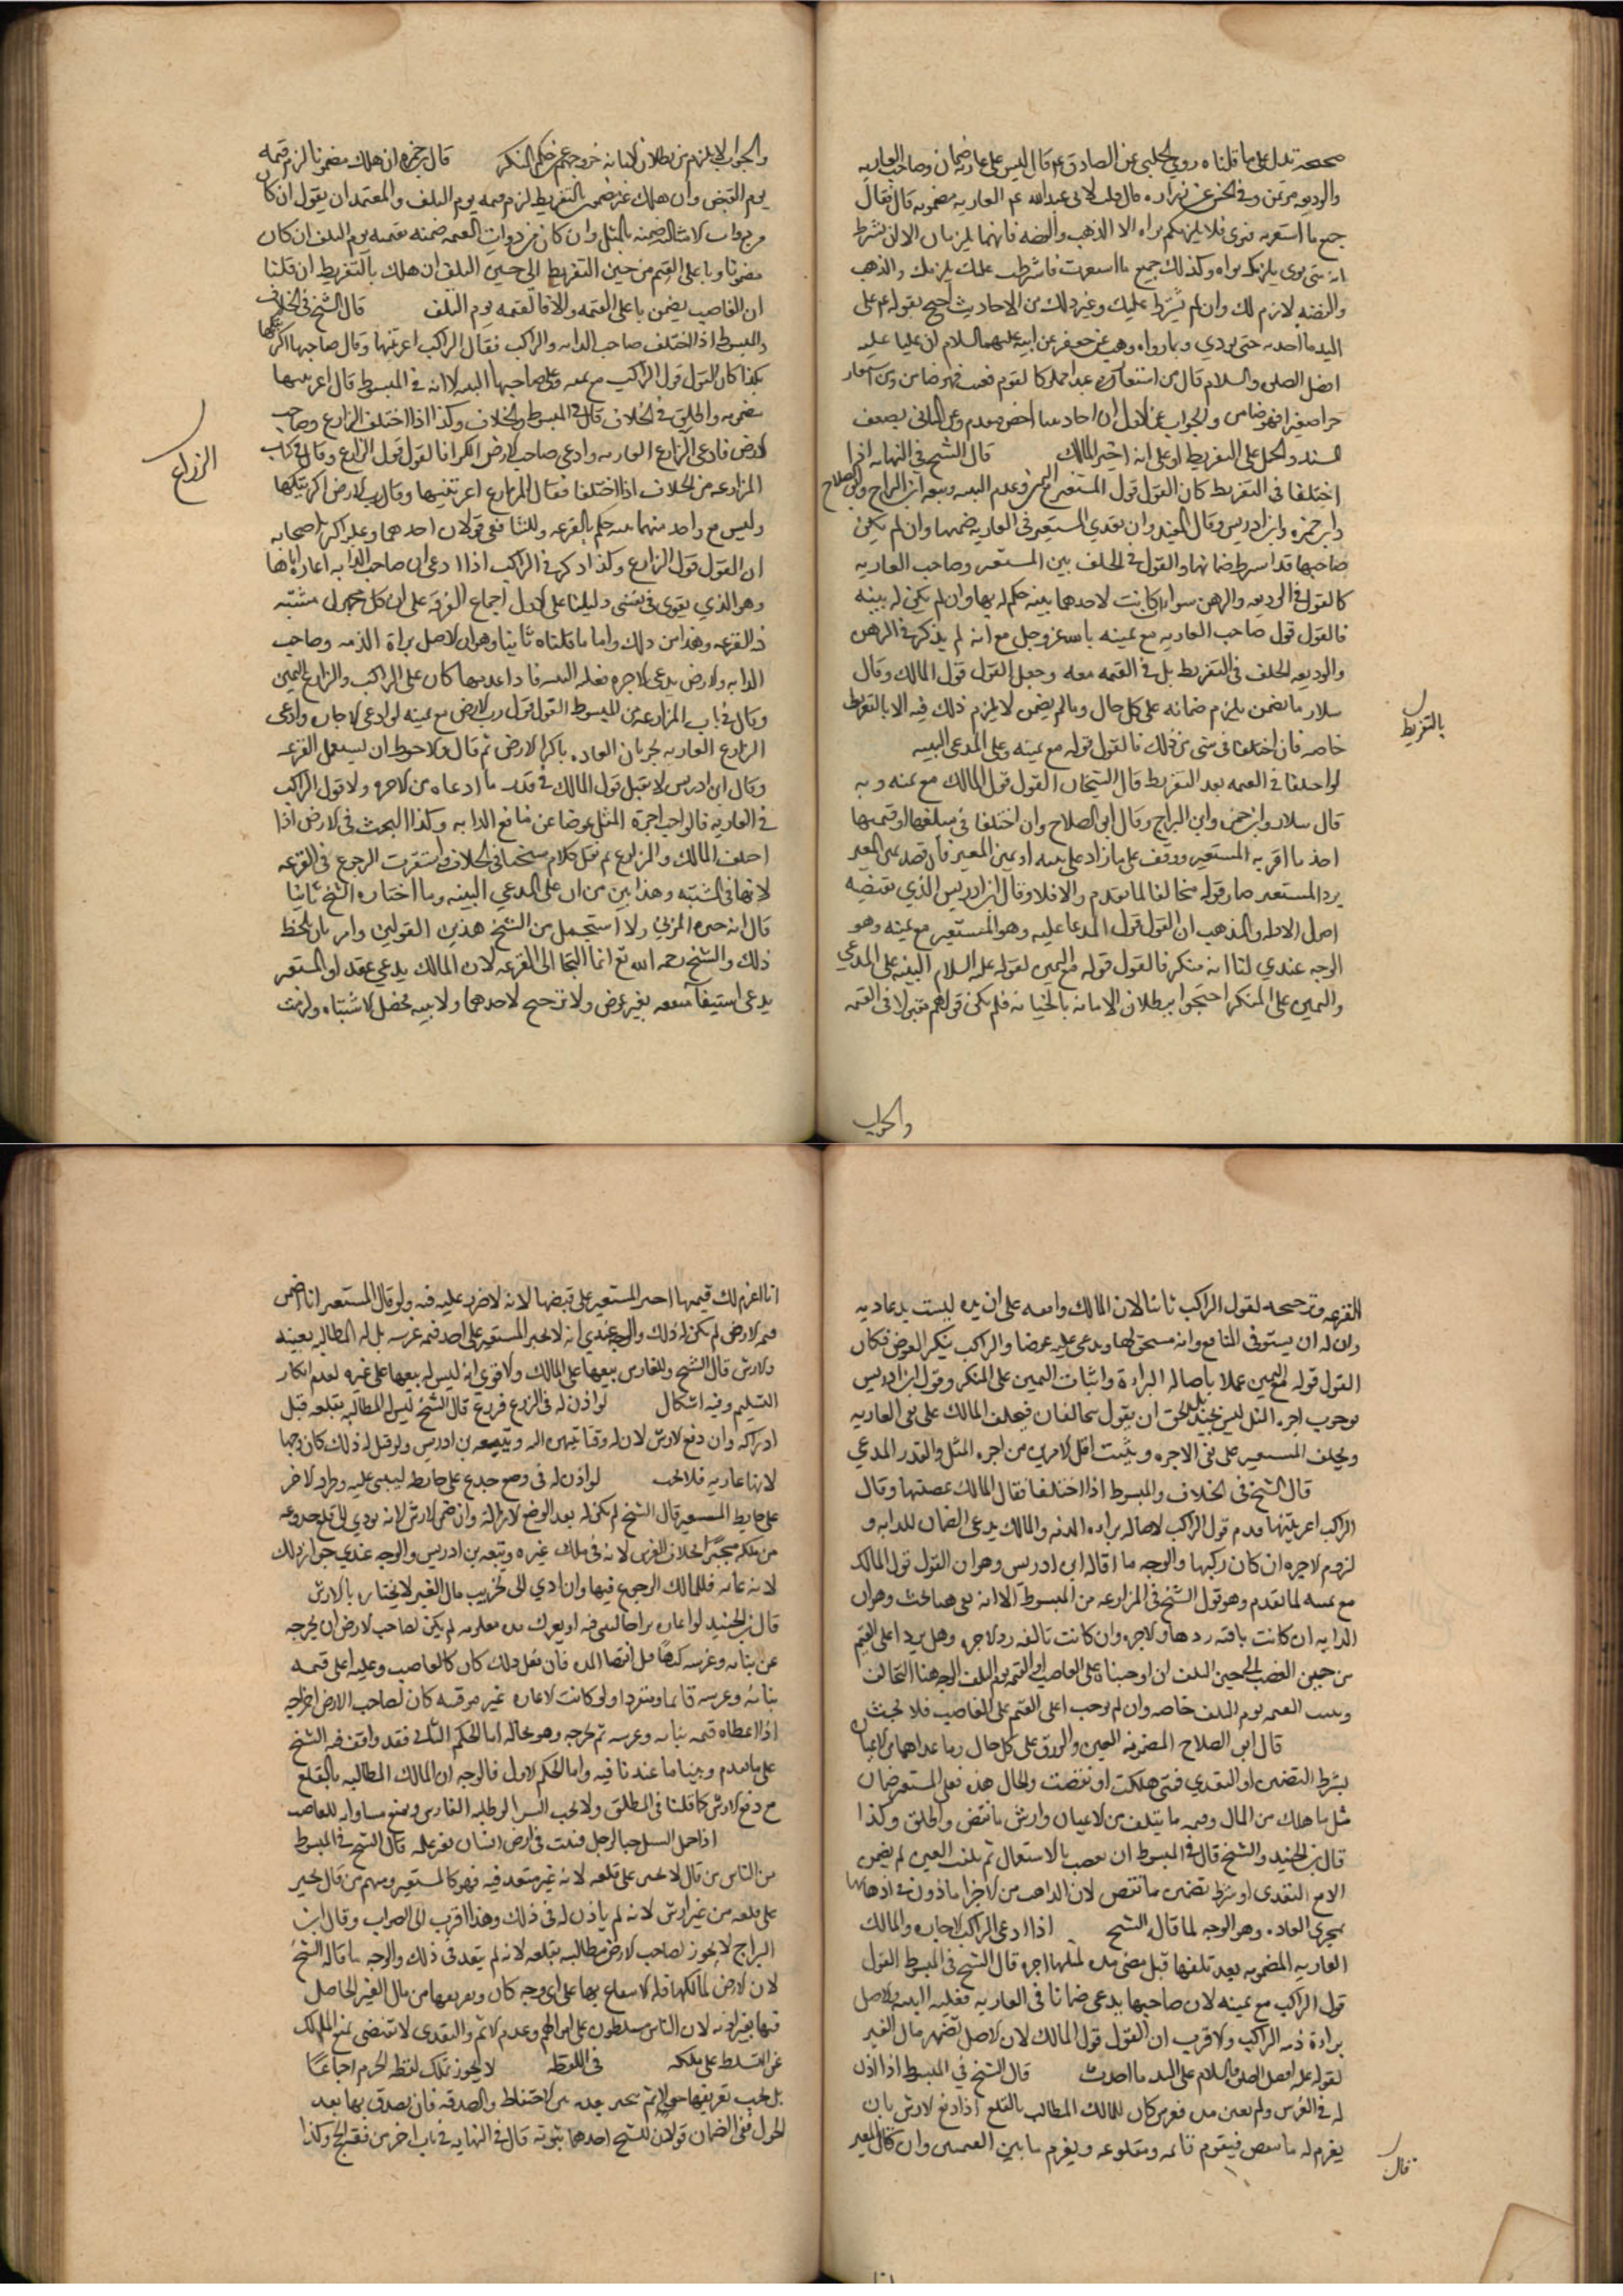 صحيحة تدل على ما قلناه روى الحلبي عن الصادق عم قال ليس على عارية ضمان وصاحب العارية
والوديعة مؤتمن وفي الحسن عن زراره قال قلت لابي عبدالله عم العارية مضمونه قال فقال
جميع ما استعرته فتوى فلا يلزمكم تواه الا الذهب والفضه فانهما يلزمان الا ان تشرط
انه متى توى يلزمك تواه وكذلك جميع ما استعرت فاشرط عليك يلزمك والذهب
والفضه لازم لك وان لم يشترط عليك وغير ذلك من الاحاديث احتج بقوله عم على
اليد ما اخذت حتى تودي وبما رواه وهب عن جعفر عن ابيه عليهما السلام ان عليا عليه
افضل الصلوة والسلام قال من استعار عبدا مملوكا لقوم فعيب فهو ضامن ومن استعار
حرا صغيرا فهو ضامن والجواب عن الاول ان احاديثنا اخص فتقدم وعن الثاني بضعف
السند والحمل على التفريط او على انه اخير المالك قال الشيخ في النهاية اذا
اختلفا في التفريط كان القول قول المستعير مع اليمين وعدم البينه وتبعه ابن البراج وابو الصلاح
وابن حمزه وابن ادريس وقال المفيد وان تعدى المستعير في العارية ضمنها وان لم يكن
صاحبها قد اشترط ضمانها والقول في الخلف بين المستعير وصاحب العارية
كالقول في الوديعه والرهن سواء ان كانت لاحدهما بينه حكم له بها وان لم يكن له بينه
فالقول قول صاحب العارية مع يمينه بالله عز وجل مع انه لم يذكر في الرهن
والوديعه الخلف في التفريط بل في القيمه معه وجعل القول قول المالك وقال
سلار ما يضمن يلزم ضمانه على كل حال وما لم يضمن لا يلزم ذلك فيه الا بالتفريط
بالتفريط
خاصه فان اختلفا في شي من ذلك فالقول قوله مع يمينه وعلى المدعي البينه
لو اختلفا في القيمه بعد التفريط قال الشيخان القول قول المالك مع يمينه وبه
قال سلار وابن حمزه وابن البراج وقال ابو الصلاح وان اختلفا في مبلغها او قيمتها
اخذ ما اقر به المستعير ووقف على ما زاد على بينه او يمين المعير فان قصد يمين المعير
برد المستعير صار قوله مخالفا لما تقدم والا فلا وقال ابن ادريس الذي يقتضيه
اصول الادله والمذهب ان القول قول المدعا عليه وهو المستعير مع يمينه وهو
الوجه عندي لنا انه منكر فالقول قوله مع اليمين لقوله عليه السلام البينه على المدعي
واليمين على المنكر احتجوا ببطلان الامانه بالخيانه فلم يكن قولهم مقبولا في القيمه
والجواب
والجواب لا يلزم من بطلان الامانه خروجهم عن حكم المنكر قال ابن حمزه ان هلك مضمونا لزم قيمه
يوم القبض وان هلك غير مضمون بالتفريط لزم قيمه يوم التلف والمعتمد ان يقول ان كان
من ذوات الامثال ضمنه بالمثل وان كان من ذوات القيمه ضمنه بقيمته يوم التلف ان كان
مضمونا وباعلى القيم من حين التفريط الى حين التلف ان هلك بالتفريط ان قلنا
ان الغاصب يضمن باعلى القيمه والا فالقيمه يوم التلف قال الشيخ في الخلاف
والمبسوط اذا اختلف صاحب الدابه والراكب فقال الراكب اعرتنيها وقال صاحبها اكريتكها
بكذا كان القول قول الراكب مع يمينه وعلى صاحبها البينه الا انه في المبسوط قال اعرتنيها
مضمونه واطلق في الخلاف قال في المبسوط والخلاف وكذا اذا اختلف الزارع وصاحب
الارض فادعى الزارع العاريه وادعى صاحب الارض الكرا فالقول قول الزارع وقال في كتاب
الزراع
المزارعه من الخلاف اذا اختلفا فقال المزارع اعرتنيها وقال رب الارض اكريتكها
وليس مع واحد منهما بينه حكم بالقرعه وللشافعي قولان احدهما وعليه اكثر اصحابه
ان القول قول الزارع وكذا ذكر في الراكب اذا ادعى ان صاحب الدابه اعاره اياها
وهو الذي يقوى في نفسي دليلنا على الاول اجماع الفرقه على ان كل مجهول مشتبه
فيه القرعه وهذا من ذلك واما ما قلناه ثانيا وهو ان الاصل براة الذمه وصاحب
الدابه والارض يدعي الاجره فعليه البينه فاذا عدمها كان على الراكب والزارع اليمين
وقال في باب المزارعه من المبسوط القول قول رب الارض مع يمينه لو ادعى الاجاره وادعى
الزارع العاريه لجريان العاده باكرا الارض ثم قال والاحوط ان يستعمل القرعه
وقال ابن ادريس لا يقبل قول المالك في قدر ما ادعاه من الاجره ولا قول الراكب
في العاريه فالواجب اجرة المثل عوضا عن منافع الدابه وكذا البحث في الارض اذا
اختلف المالك والزارع ثم نقل كلام شيخنا في الخلاف واستقرب الرجوع في القرعه
لانها في المشتبه وهذا بين من ان على المدعي البينه وما اختاره الشيخ ثانيا
قال انه خيره المزني ولا استجمل من الشيخ هذين القولين وامر بان يلحظ
ذلك والشيخ رحمه الله تع انما التجا الى القرعه لان المالك يدعي عقدا والمستعير
يدعي استيفا منفعه بغير عوض ولا ترجيح لاحدهما ولا بينه فحصل الاشتباه ولزمت
القرعه وترجيحه لقول الراكب ثانيا لان المالك وافقه على ان يده ليست يد عاديه
وان له ان يستوفي المنافع وانه مستحق لها ويدعي عليه عوضا والراكب ينكر العوض فكان
القول قوله مع اليمين عملا باصاله البراءة واثبات اليمين على المنكر وقول ابن ادريس
بوجوب اجره المثل ليس بجيد بل الحق ان يقول يتحالفان فيحلف المالك على نفي العاريه
ويحلف المستعير على نفي الاجره ويثبت اقل الامرين من اجره المثل والقدر المدعي
قال الشيخ في الخلاف والمبسوط اذا اختلفا فقال المالك غصبتها وقال
الراكب اعرتنيها قدم قول الراكب لاصاله براءه الذمه والمالك يدعي الضمان للدابه و
لزوم الاجره ان كان ركبها والوجه ما قاله ابن ادريس وهو ان القول قول المالك
مع يمينه لما تقدم وهو قول الشيخ في المزارعه من المبسوط الا انه بقي هنا بحث وهو ان
الدابه ان كانت باقيه ردها والاجره وان كانت تالفه رد الاجره وهل يرد اعلى القيم
من حين الغصب الى حين التلف ان اوجبناه على الغاصب او القيمه يوم التلف الوجه هنا التحالف
وثبت القيمه يوم التلف خاصه وان لم نوجب اعلى القيم على الغاصب فلا بحث
قال ابو الصلاح المضمونه العين والورق على كل حال وما عداهما من الاعيان
بشرط التضمين او التعدي فمتى هلكت او نقصت والحال هذه فعلى المستعير ضمان
مثل ما هلك من المال وقيمه ما يتلف من الاعيان وارش ما نقص واطلق وكذا
قال ابن الجنيد والشيخ قال في المبسوط ان نقصت بالاستعمال ثم تلفت العين لم يضمن
الا مع التعدي او شرط تضمين ما نقص لان الذاهب من الاجزا ماذون في اذهابها
بمجرى العاده وهو الوجه لما قال الشيخ اذا ادعى الراكب الاجاره والمالك
العاريه المضمونه بعد تلفها قبل مضي مده لمثلها اجره قال الشيخ في المبسوط القول
قول الراكب مع يمينه لان صاحبها يدعي ضمانا في العاريه فعليه البينه والاصل
براءة ذمه الراكب والاقرب ان القول قول المالك لان الاصل تضمين مال الغير
لقوله عليه افضل الصلوة والسلام على اليد ما اخذت قال الشيخ في المبسوط اذا اذن
له في الغرس ولم يعين مده فغرس كان للمالك المطالبه بالقلع اذا دفع الارش بان
يغرم له ما نقص فيقوم قائمه ومقلوعه ويغرم ما بين القيمتين وان قال المعير
قال
انا اغرم لك قيمتها اجبر المستعير على قبضها لانه لا ضرر عليه فيه ولو قال المستعير انا اضمن
قيمه الارض لم يكن له ذلك والوجه عندي انه لا يجبر المستعير على اخذ قيمه غرسه بل له المطالبه بعينه
والارش قال الشيخ وللغارس بيعها على المالك والاقوى انه ليس له بيعها على غيره لعدم امكان
التسليم وفيه اشكال لو اذن له في الزرع فزرع قال الشيخ ليس له المطالبه بقلعه قبل
ادراكه وان دفع الارش لان له وقتا ينتهي اليه وتبعه بن ادريس ولو قيل له ذلك كان وجها
لانها عاريه فلا تجب لو اذن له في وضع جذع على حايطه ليبني عليه وطرفه الاخر
على حايط المستعير قال الشيخ لم يكن له بعد الوضع الازاله وان ضمن الارش لانه يودي الى قلع جذوعه
من ملكه مجبرا بخلاف الغرس لانه في ملك غيره وتبعه بن ادريس والوجه عندي جواز ذلك
لانه عاريه فللمالك الرجوع فيها وان ادي الى تخريب مال الغير لانجباره بالارش
قال بن الجنيد لو اعاره براحا ليبني فيه او يغرس مده معلومه لم يكن لصاحب الارض ان يخرجه
عن بنائه وغرسه كرها قبل انقضا المده فان فعل ذلك كان كالغاصب وعليه اعلى قيمه
بنائه وغرسه قائما ومنفردا ولو كانت الاعاره غير موقته كان لصاحب الارض اخراجه
اذا اعطاه قيمه بنائه وغرسه ثم يخرجه وهو بحاله اما الحكم الثاني فقد وافقه فيه الشيخ
على ما تقدم وبينا ما عندنا فيه واما الحكم الاول فالوجه ان للمالك المطالبه بالقلع
مع دفع الارش كما قلنا في المطلق ولا يجب البيع ان طلبه الغارس ويمنع مساواته للغاصب
اذا حمل السيل حبا لرجل فنبت في ارض انسان بغير علمه قال الشيخ في المبسوط
من الناس من قال لا يجبر على قلعه لانه غير متعد فيه فهو كالمستعير ومنهم من قال يجبر
على قلعه من غير ارش لانه لم ياذن له في ذلك وهذا اقرب الى الصواب وقال ابن
البراج لا يجوز لصاحب الارض مطالبته بقلعه لانه لم يتعد في ذلك والوجه ما قاله الشيخ
لان الارض لمالكها فله الانتفاع بها على اي وجه كان وتفريغها من مال الغير الحاصل
فيها بغير اذنه لان الناس مسلطون على اموالهم وعدم الاثم والتعدي لا تقتضي منع المالك
عن التسلط على ملكه في اللقطه لا يجوز تملك لقطه الحرم اجماعا
بل يجب تعريفها حولا ثم يتخير بعده بين الاحتفاظ والصدقه فان تصدق بها بعد
الحول ففي الضمان قولان للشيخ احدهما ثبوته قال في النهايه في باب اخر من فقه الحج وكذا